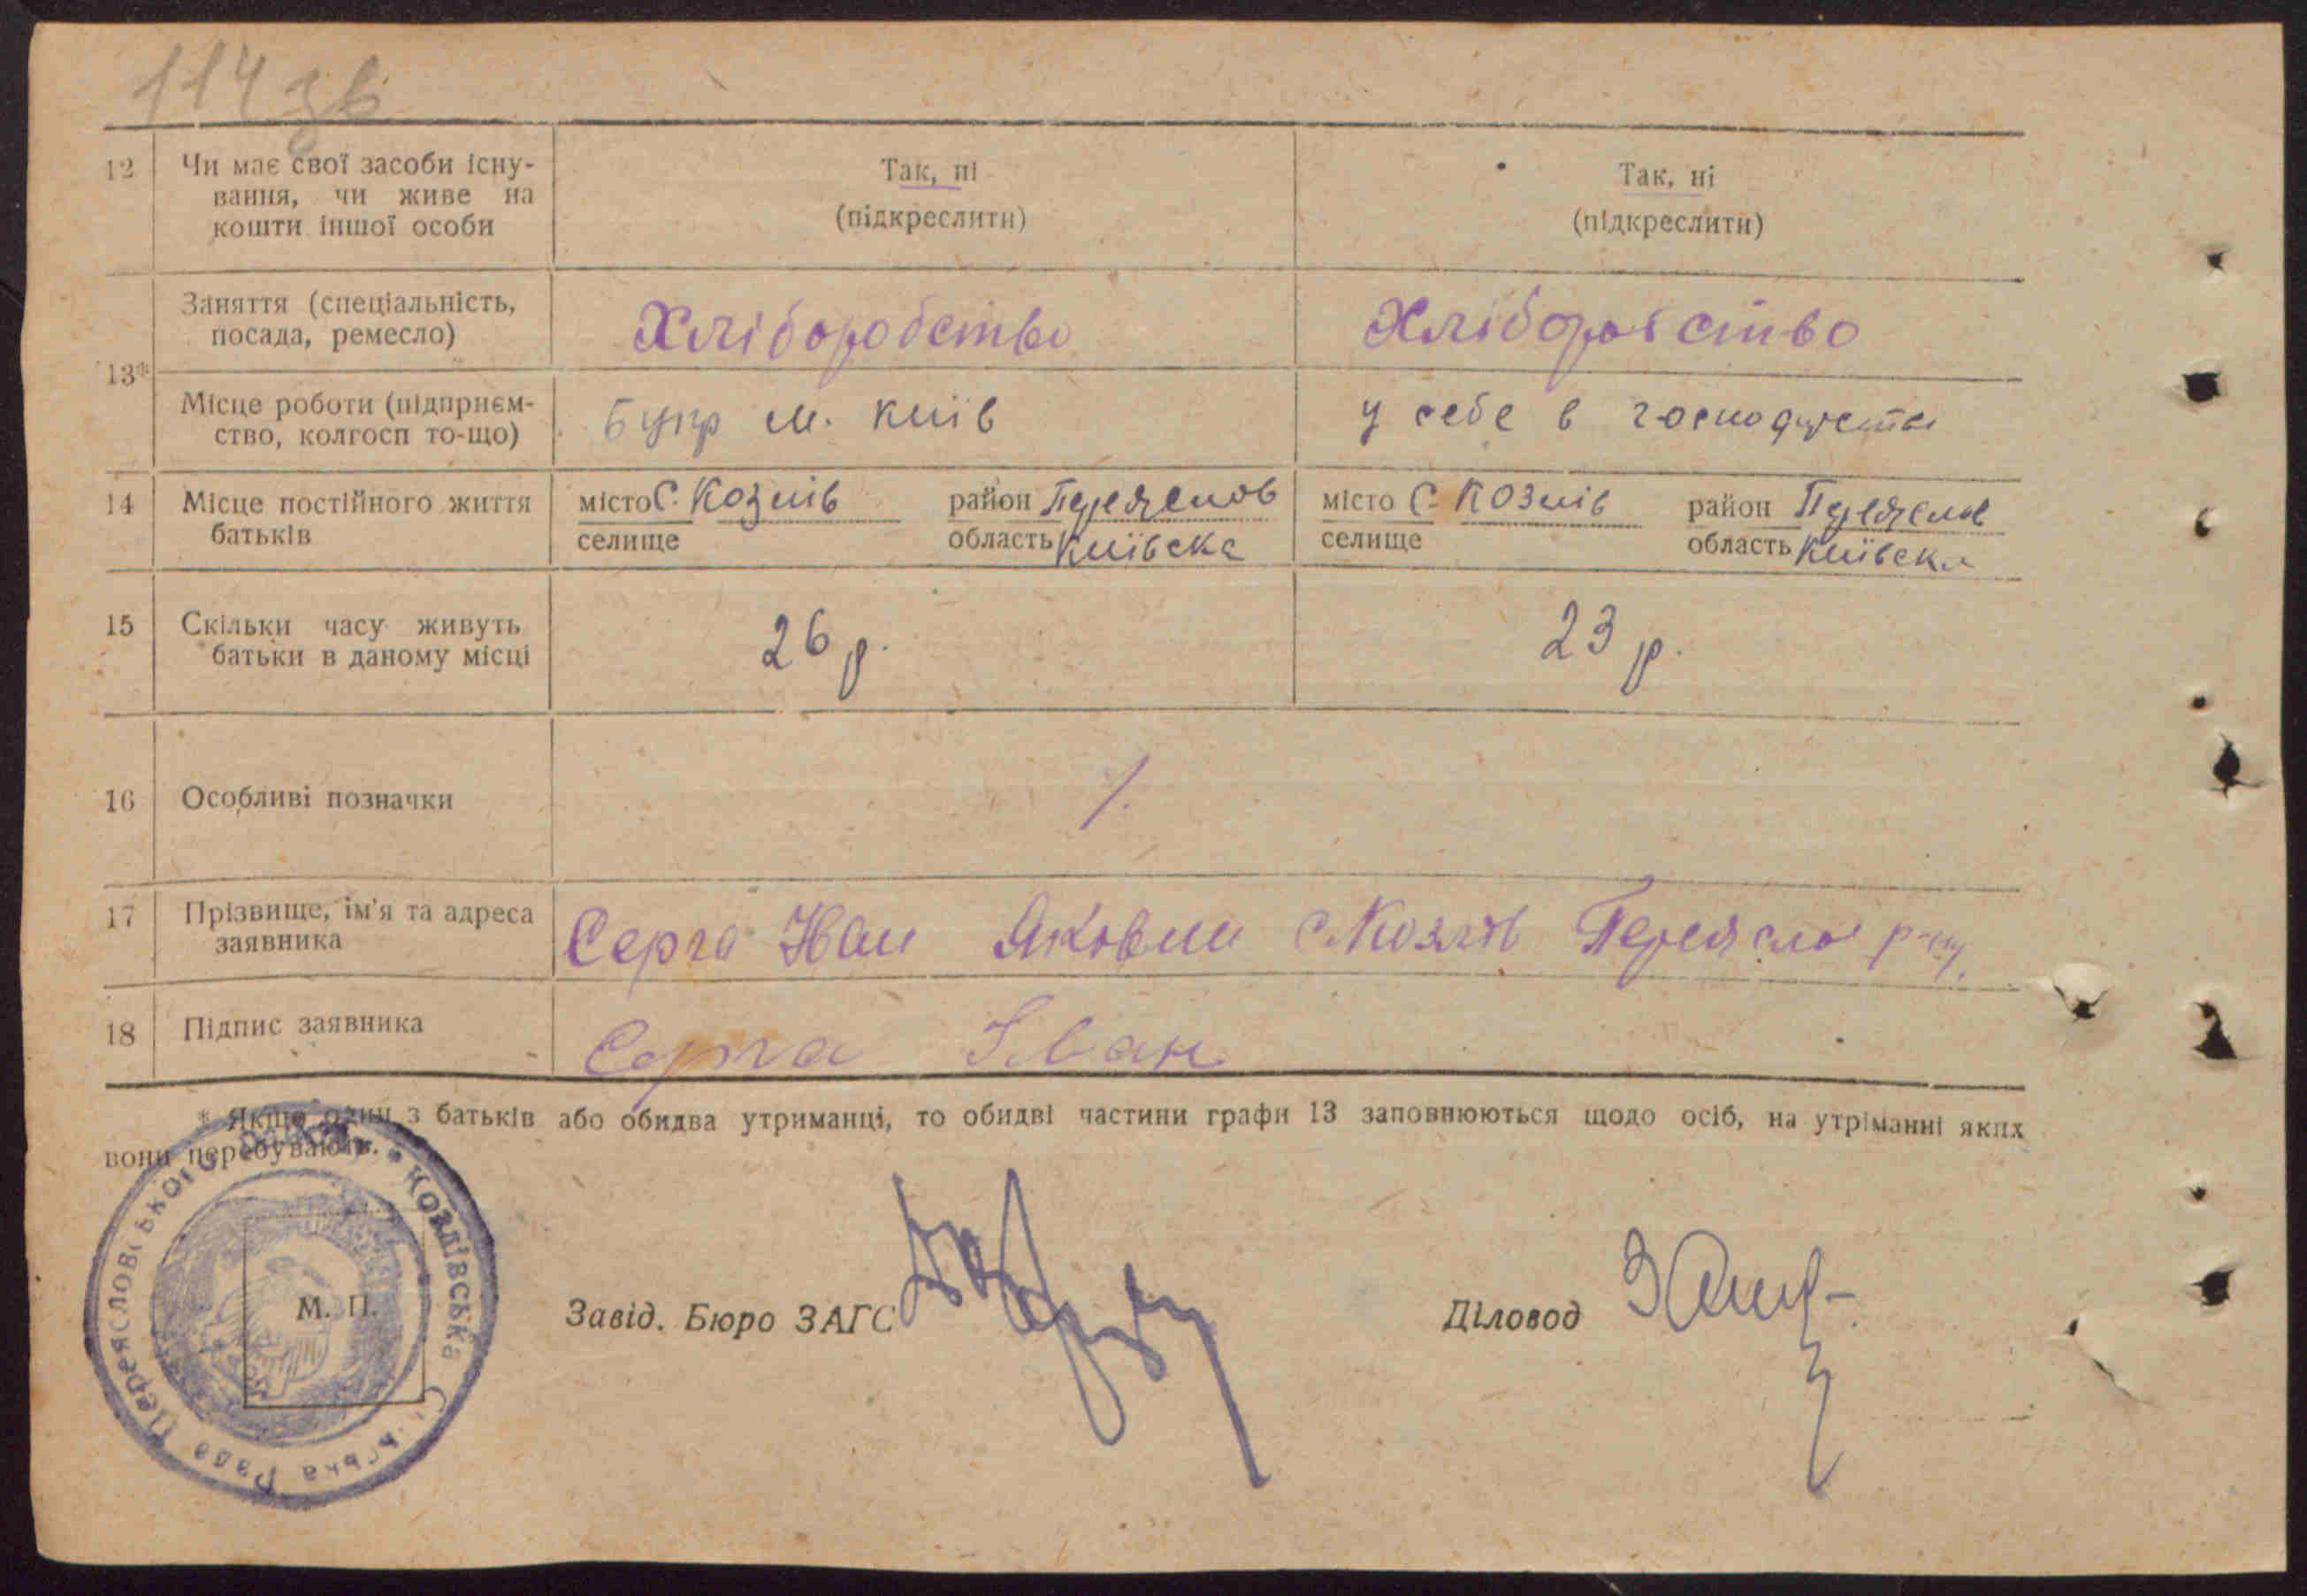 114 зв
12 Чи має свої засоби існу-
вання, чи живе на
кошти іншої особи
Так, ні
(підкреслити)
Так, ні
(підкреслити)
13*
Заняття (спеціальність,
посада, ремесло)
Хліборобство
Хліборобство
Місце роботи (підприєм-
ство, колгосп то-що)
Бупр м. Київ
у себе в господарстві
14 Місце постійного життя
батьків
місто С. Козлів район Переяслов
селище область Київська
місто С. Козлів район Переяслов
селище область Київська
15 Скільки часу живуть
батьки в даному місці
26 р.
23 р.
16 Особливі позначки
17 Прізвище, ім'я та адреса
заявника
Серга Іван Яковлев С Козлів Переясло р-ну
18 Підпис заявника
Серга Іван
* Якщо один з батьків або обидва утриманці, то обидві частини графи 13 заповнюються щодо осіб, на утріманні яких
вони перебувають.
КОЗЛІВСЬКА Сільська Рада Переясловського
М. П.
Завід. Бюро ЗАГС
Діловод